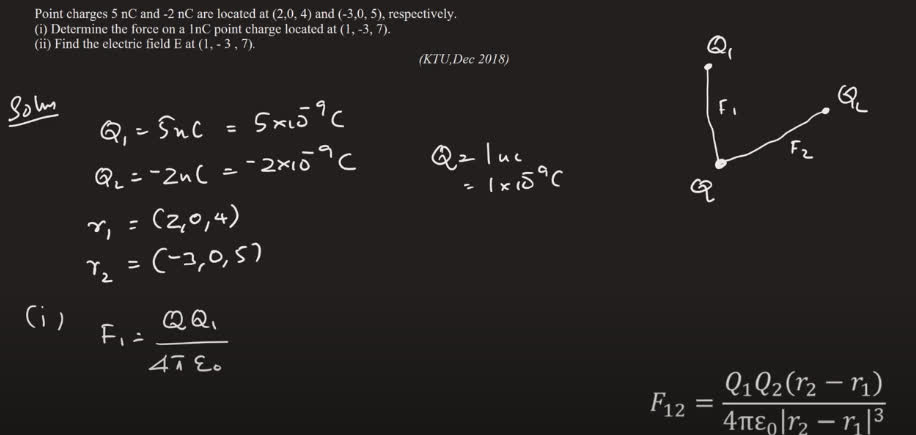 Point charges 5 nC and -2 nC are located at (2,0, 4) and (-3,0, 5), respectively.
(i) Determine the force on a 1nC point charge located at (1, -3, 7).
(ii) Find the electric field E at (1, - 3 , 7).
(KTU,Dec 2018)
Soln
Q₁ = 5nC = 5×10⁻⁹C
Q₂ = -2nC = -2×10⁻⁹C
r₁ = (2,0,4)
r₂ = (-3,0,5)
Q = 1nc
= 1×10⁻⁹C
Q₁
Q₂
F₁
F₂
Q
(i) F₁ = QQ₁ / 4π ε₀
F₁₂ = Q₁Q₂(r₂ − r₁) / 4πε₀|r₂ − r₁|³